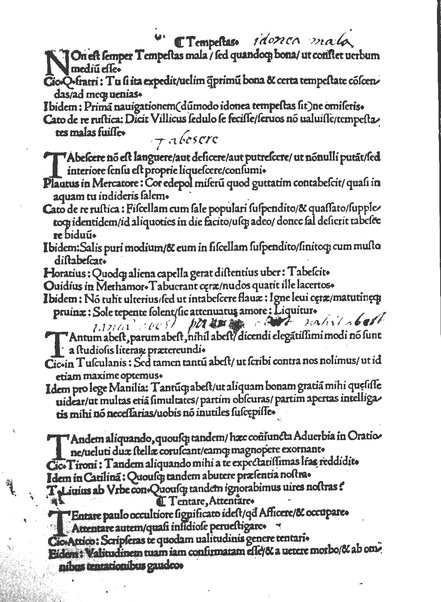 ¶ Tempestas. idonea mala
NOn est semper Tempestas mala / sed quandoq; bona / ut constet uerbum
mediũ esse.
Cic.Q.fratri: Tu si ita expedit / uelim q̃primũ bona & certa tempestate cõscen-
das / ad meq; uenias.
Ibidem: Primã nauigationem (dũmodo idonea tempestas sit) ne omiseris.
Cato de re rustica: Dicit Villicus sedulo se fecisse / seruos nõ ualuisse / tempesta-
tes malas fuisse.
Tabescere
TAbescere nõ est languere / aut deficere / aut putrescere / ut nõnulli putãt / sed
interiore sensu est proprie liquescere / consumi.
Plautus in Mercatore: Cor edepol miserũ quod guttatim contabescit / quasi in
aquam tu indideris salem.
Cato de re rustica: Fiscellam cum sale populari suspendito / & quassato / supple-
toq; identidem / id aliquoties in die facito / usq; adeo / donec sal desierit tabesce
re biduũ.
Ibidem: Salis puri modium / & eum in fiscellam suspendito / sinitoq; cum musto
distabescat.
Horatius: Quodq; aliena capella gerat distentius uber: Tabescit.
Ouidius in Methamor. Tabuerant ceræ / nudos quatit ille lacertos.
Ibidem: Nõ tulit ulterius / sed ut intabescere flauæ: Igne leui ceræ / matutineq;
pruinæ: Sole tepente solent / sic attenuatus amore: Liquitur.
tantũ abest parum abest nihil abest
TAntum abest, parum abest, nihil abest / dicendi elegãtissimi modi nõ sunt
a studiosis literaȝ prætereundi.
Cic.in Tusculanis: Sed tamen tantũ abest / ut scribi contra nos nolimus / ut id
etiam maxime optemus.
Idem pro lege Manilia: Tantũq; abest / ut aliquam bonam gratiã mihi quesisse
uidear / ut multas etiã simultates / partim obscuras / partim apertas intelliga-
tis mihi nõ necessarias / uobis nõ inutiles suscepisse.
TAndem aliquando, quousq; tandem / hæc coniuncta Aduerbia in Oratio-
ne / ueluti duæ stellæ coruscant / eamq; magnopere exornant.
Cic.Tironi: Tandem aliquando mihi a te expectatissimas lr̃as reddidit.
Idem in Catilinã: Quousq; tandem abutere præsentia nostra.
T.Liuius ab Vrbe con. Quousq; tandem ignorabimus uires nostras?
¶ Tentare, Attentare.
TEntare paulo occultiore significato idest / qđ Afficere / & occupare.
Attentare autem / quasi insidiose peruestigare.
Cic.Attico: Scripseras te quodam ualitudinis genere tentari.
Eidem: Valitudinem tuam iam confirmatam esse / & a uetere morbo / & ab om-
nibus tentationibus gaudeo.